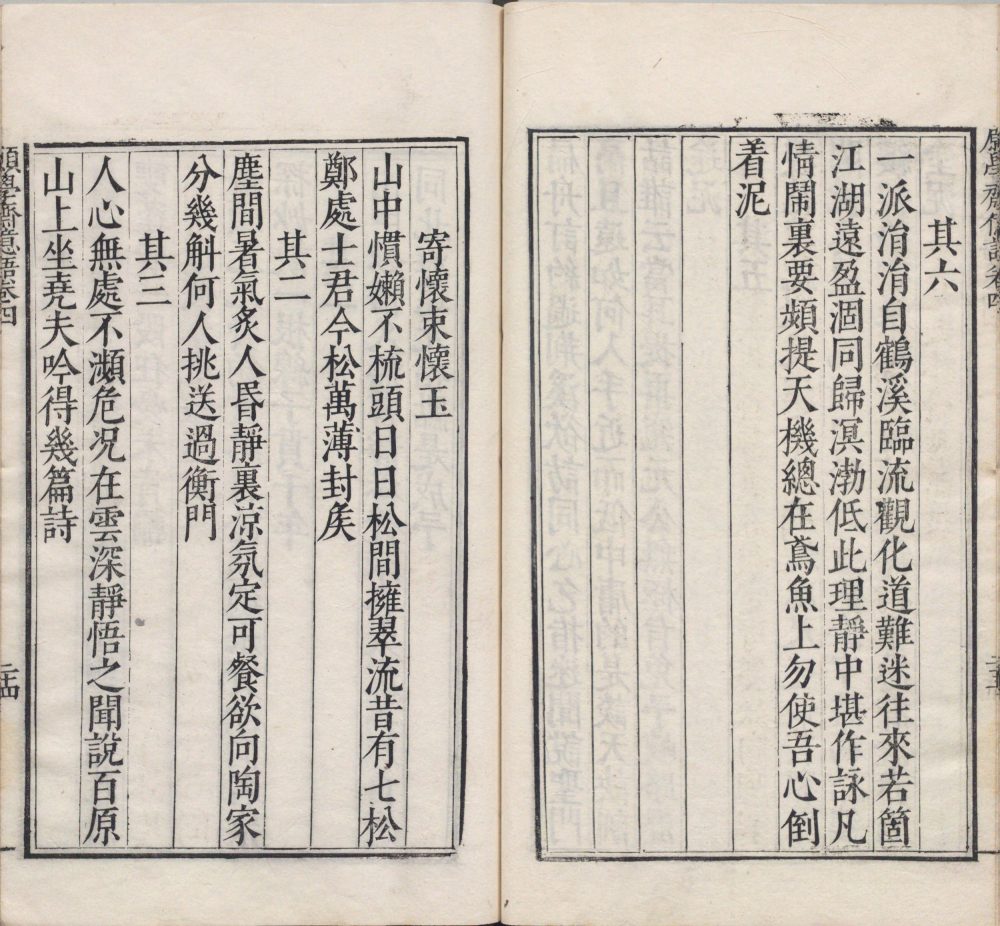 其六
一派㳙㳙自鶴溪臨流觀化道難迷往來若箇
江湖遠盈涸同歸溟渤低此理靜中堪作詠凡
情鬧裏要頻提天機總在鳶魚上勿使吾心倒
着泥
寄懷束懷玉
山中慣嬾不梳頭日日松間擁翠流昔有七松
鄭處士君今松萬薄封矦
其二
塵間暑氣炙人昏靜裏涼氛定可餐欲向陶家
分幾斛何人挑送過衡門
其三
人心無處不瀕危况在雲深靜悟之聞說百原
山上坐堯夫吟得幾篇詩
願學齋億語卷四
二十四